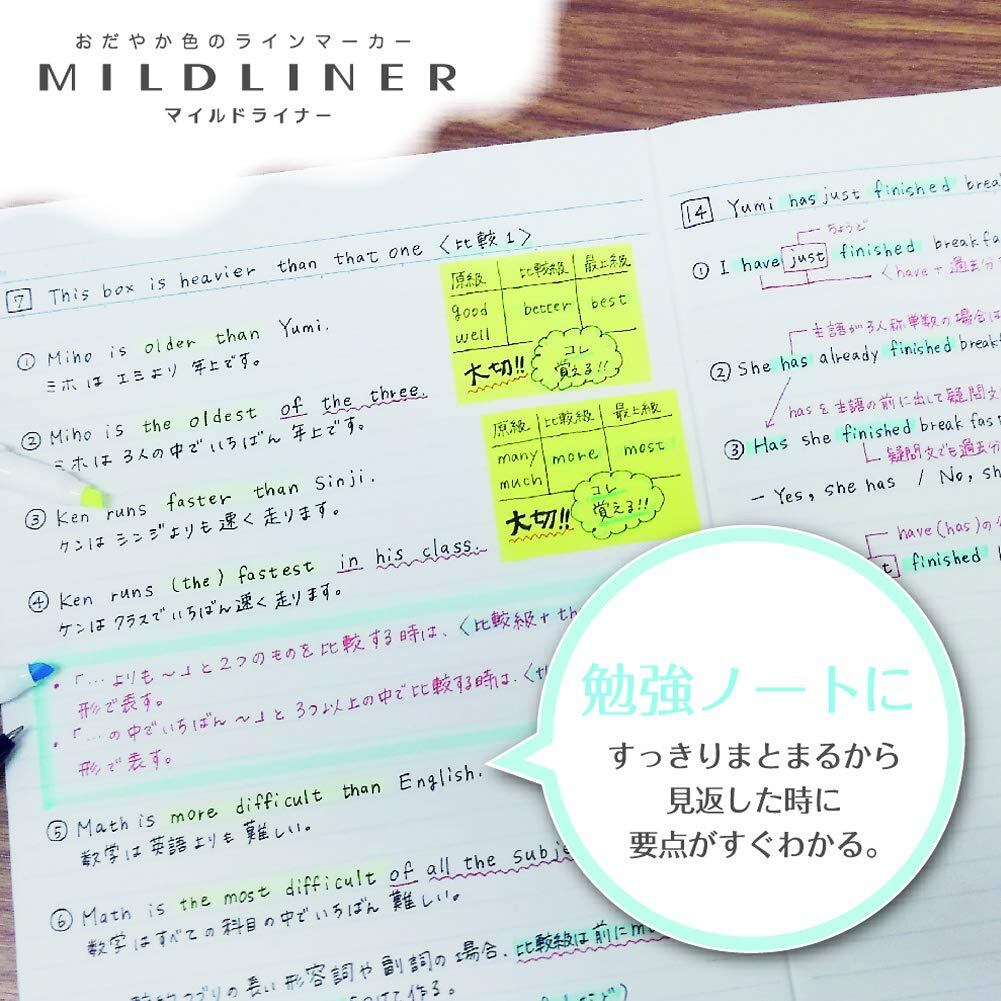 おだやか色のラインマーカー
MILDLINER
マイルドライナー
7 This box is heavier than that one 〈比較1〉
① Miho is older than Yumi.
ミホは エミより 年上です。
② Miho is the oldest of the three.
ミホは 3人の中でいちばん 年上です。
③ Ken runs faster than Sinji.
ケンは シンジよりも 速く 走ります。
④ Ken runs (the) fastest in his class.
ケンは クラスでいちばん 速く 走ります。
・「…よりも~」と2つのものを比較する時は、〈比較級+th
形で表す。
・「…の中でいちばん~」と3つ以上の中で比較する時は、〈th
形で表す。
⑤ Math is more difficult than English.
数学は 英語よりも 難しい。
⑥ Math is the most difficult of all the subje
数学はすべての科目の中でいちばん 難しい。
の長い形容詞や副詞の場合、比較級は前にm
けて作る。
原級 比較級 最上級
good better best
well
大切!! コレ
覚える!!
原級 比較級 最上級
many more most
much
大切!! コレ
覚える!!
14 Yumi has just finished brea
ちょうど
① I have just finished breakfa
〈have+過去分
主語が3人称単数の場合は
② She has already finished break
hasを主語の前に出して疑問文
③ Has she finished breakfas
疑問文でも過去分
- Yes, she has / No, sh
have(has)の
t finished b
勉強ノートに
すっきりまとまるから
見返した時に
要点がすぐわかる。